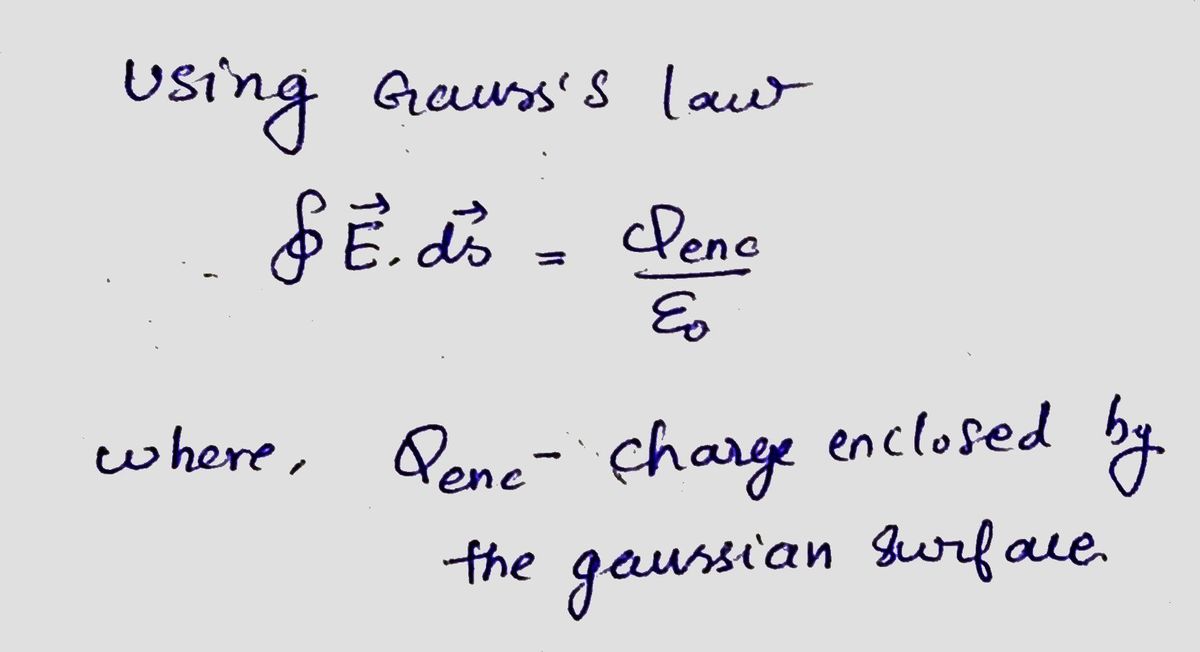 Using Gauss's law
∮ E⃗. ds⃗ = Qenc / ε₀
where, Qenc - charge enclosed by
the gaussian surface